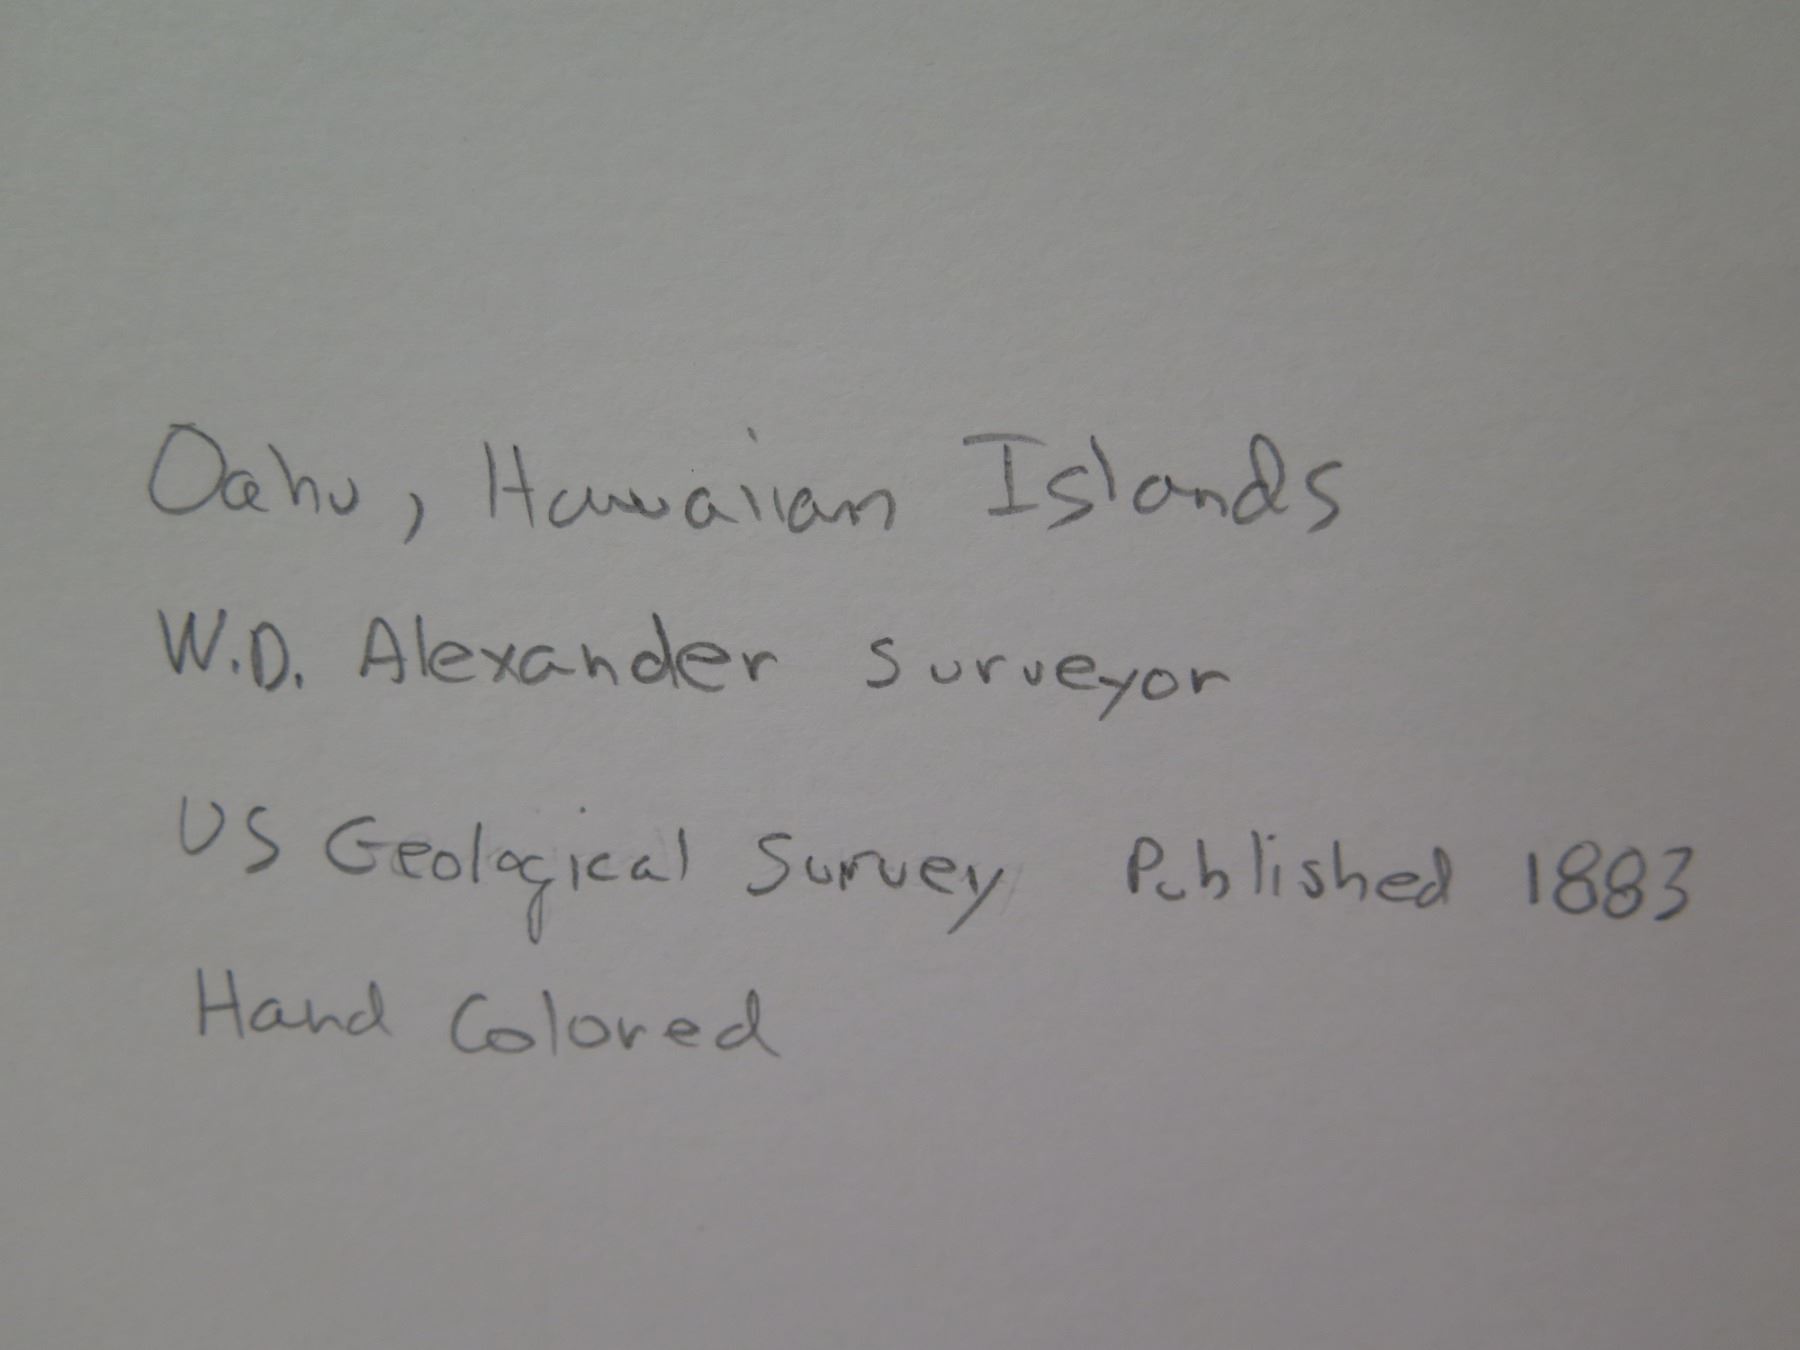 Oahu, Hawaiian Islands
W.D. Alexander surveyor
US Geological Survey Published 1883
Hand Colored